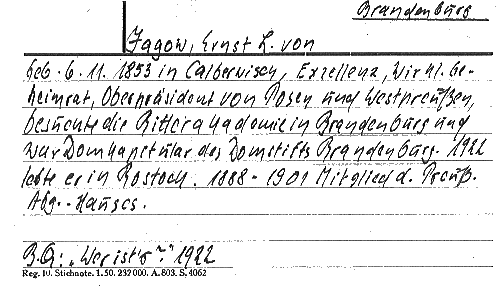 Brandenburg
Jagow, Ernst L. von
Geb. 6.11.1853 in Calberwisch, Exzellenz, Wirkl. Ge-
heimrat, Oberpräsident von Posen und Westpreußen,
besuchte die Ritterakademie in Brandenburg und
war Domkapitular des Domstifts Brandenburg. 1922
lebte er in Rostock. 1888-1901 Mitglied d. Preuß.
Abg.-Hauses.
B.Q.: „Wer ist's?" 1922
Reg. 10. Stichnote. 1. 50. 232000. A. 803. S. 4062